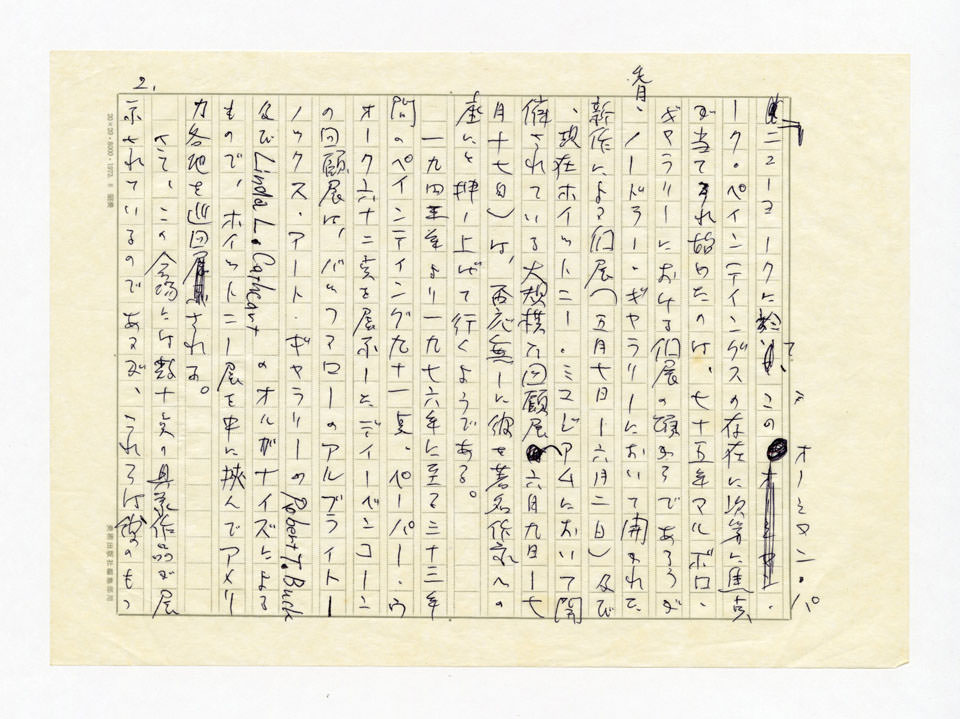 2.
ニューヨークに於て、この
オーシマン・パ
ーク・ペインティングスの存在に次第に焦点
が当てられ始めたのは、七十五年マルボロ・
ギャラリーにおける個展の頃からであろうが
、ノードラー・ギャラリーにおいて開かれた
新作による個展（五月七日ー六月二日）及び
、現在ホイットニー・ミュゼアムにおいて開
催されている大規模な回顧展（六月九日ー七
月十七日）は、否応無しに彼を著名作家への
座にと押し上げて行くようである。
一九四三年より一九七六年に至る三十三年
間のペインティング九十一点、ペーパー・ウ
オーク六十二点を展示したディーベンコーン
の回顧展は、バッファローのアルブライトー
ノックス・アート・ギャラリーのRobert T. Buck
及びLinda L. Cathcartのオルガナイズによる
もので、ホイットニー展を中に挟んでアメリ
カ各地を巡回される。
さて、この会場には数十点の具象作品が展
示されているのであるが、これらは彼のもつ
20×20・6000・1973.
美術出版社編集部用